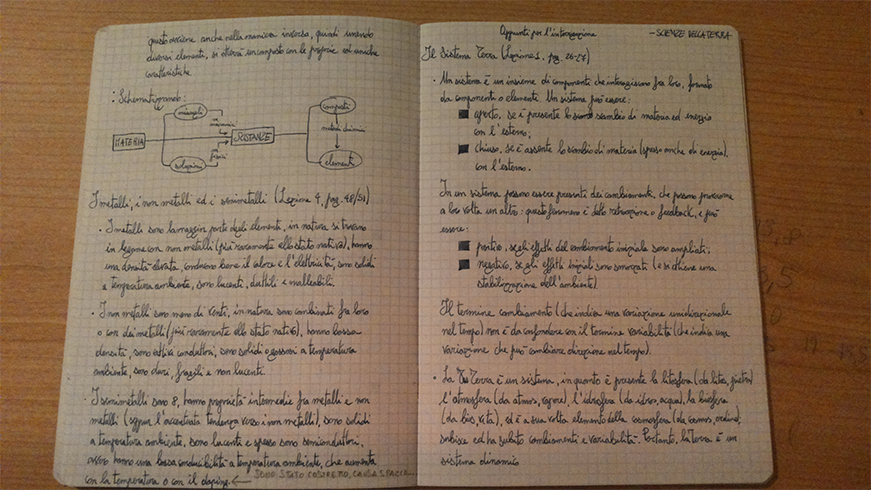 questo avviene anche nella maniera inversa, quindi unendo
diversi elementi, si otterrà un composto con le proprie ed uniche
caratteristiche
: Schematizzando:
miscugli
composti
MATERIA
SOSTANZE
metodi chimici
fisici
soluzioni
elementi
I metalli, i non metalli ed i semimetalli (Lezione 4, pag. 48/51)
· I metalli sono la maggior parte degli elementi, in natura si trovano
in legame con non metalli (più raramente allo stato nativo), hanno
una densità elevata, conducono bene il calore e l'elettricità, sono solidi
a temperatura ambiente, sono lucenti, duttili e malleabili.
· I non metalli sono meno di venti, in natura sono combinati fra loro
o con dei metalli (più raramente allo stato nativo), hanno bassa
densità, sono cattivi conduttori, sono solidi o gassosi a temperatura
ambiente, sono duri, fragili e non lucenti.
· I semimetalli sono 8, hanno proprietà intermedie fra metalli e non
metalli (seppur l'accentuata tendenza verso i non metalli), sono solidi
a temperatura ambiente, sono lucenti e spesso sono semiconduttori,
ovvero hanno una bassa conducibilità a temperatura ambiente, che aumenta
con la temperatura o con il doping. ←
SONO STATO COSTRETTO, CAUSA SPACCO...
Appunti per l'interrogazione
- SCIENZE DELLA TERRA
Il Sistema Terra (Lezione 1, pag. 26-27)
· Un sistema è un insieme di componenti che interagiscono fra loro, formato
da componenti o elementi. Un sistema può essere:
aperto, se è presente lo scambio di materia ed energia
con l'esterno;
chiuso, se è assente lo scambio di materia (spesso anche di energia),
con l'esterno.
In un sistema possono essere presenti dei cambiamenti, che possono provocarne
a loro volta un altro: questo fenomeno è detto retroazione o feedback, e può
essere:
positivo, se gli effetti del cambiamento iniziale sono ampliati;
negativo, se gli effetti iniziali sono smorzati (e si ottiene una
stabilizzazione dell'ambiente)
Il termine cambiamenti (che indica una variazione unidirezionale
nel tempo) non è da confondere con il termine variabilità (che indica una
variazione che può cambiare direzione nel tempo).
· La Terra è un sistema, in quanto è presente la litosfera (da litos, pietra)
l'atmosfera (da atmos, vapore), l'idrosfera (da idros, acqua), la biosfera
(da bios, vita), ed è a sua volta elemento della cosmosfera (da cosmos, ordine),
subisce ed ha subito cambiamenti e variabilità. Pertanto, la Terra è un
sistema dinamico